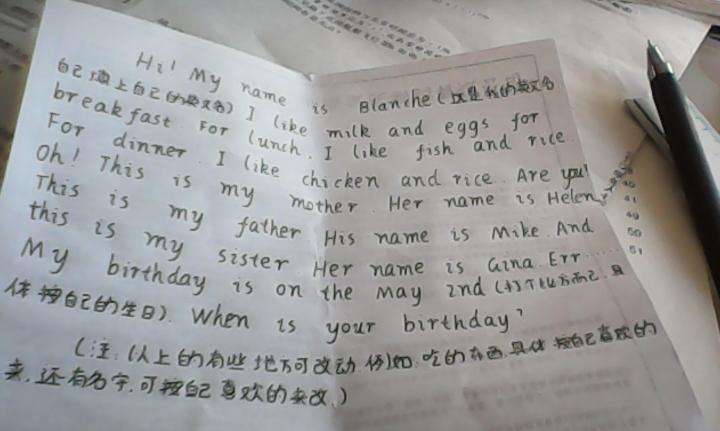 Hi! My name is Blanche (这是我的英文名
自己填上自己的英文名) I like milk and eggs for
breakfast. For lunch, I like fish and rice.
For dinner. I like chicken and rice. Are you?
Oh! This is my mother. Her name is Helen.
This is my father His name is Mike. And
this is my sister. Her name is Gina. Err......
My birthday is on the May 2nd (打个比方而已,具
体按自己的生日). When is your birthday?
(注:以上的有些地方可改动.例如.吃的东西.具体按自己喜欢的
来.还有名字.可按自己喜欢的来改.)
49
50
51